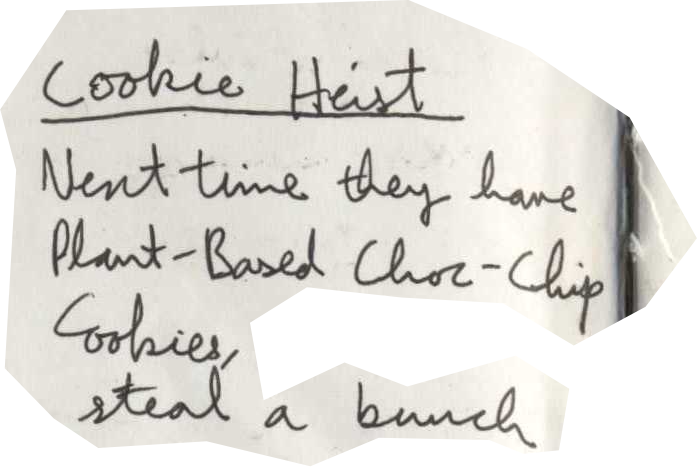 Cookie Heist
Next time they have
Plant-Based Choc-Chip
Cookies,
steal a bunch